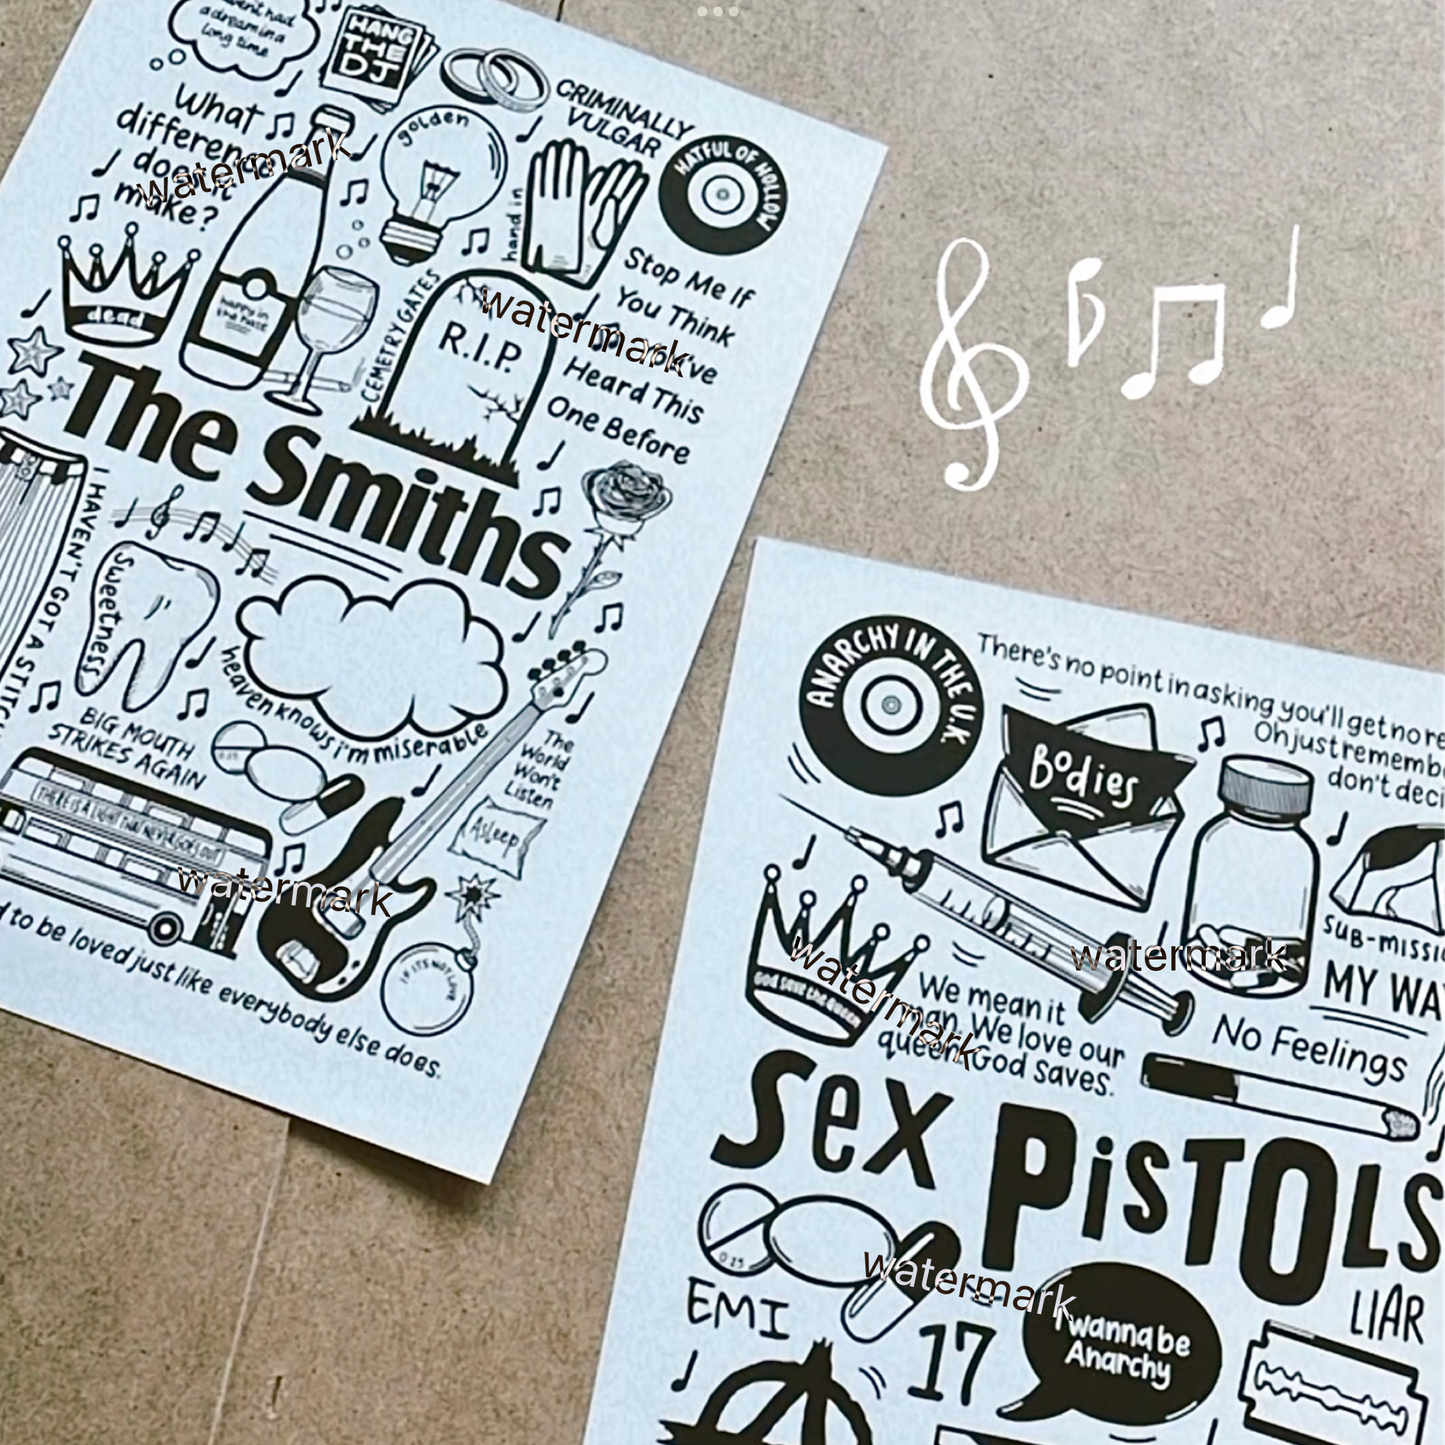 haven't had
a dream in a
long time
HANG
THE
DJ
CRIMINALLY
VULGAR
What
difference
does it
make?
golden
hand in
HATFUL OF HOLLOW
dead
happy in
the haze
CEMETRY GATES
R.I.P.
Stop Me If
You Think
You've
Heard This
One Before
The Smiths
I HAVEN'T GOT A STITCH
sweetness
heaven knows i'm miserable
BIG MOUTH
STRIKES AGAIN
0.15
The
World
Won't
Listen
Asleep
THERE IS A LIGHT THAT NEVER GOES OUT
IF IT'S NOT LOVE
to be loved just like everybody else does.
watermark
watermark
watermark
ANARCHY IN THE U.K.
There's no point in asking you'll get no re
Oh just rememb
don't deci
Bodies
SUB-MISSI
MY WA
No Feelings
God save the Queen
We mean it
man. We love our
queen. God saves.
Sex PiSTOLS
0.15
EMI
17
I wanna be
Anarchy
LIAR
watermark
watermark
watermark